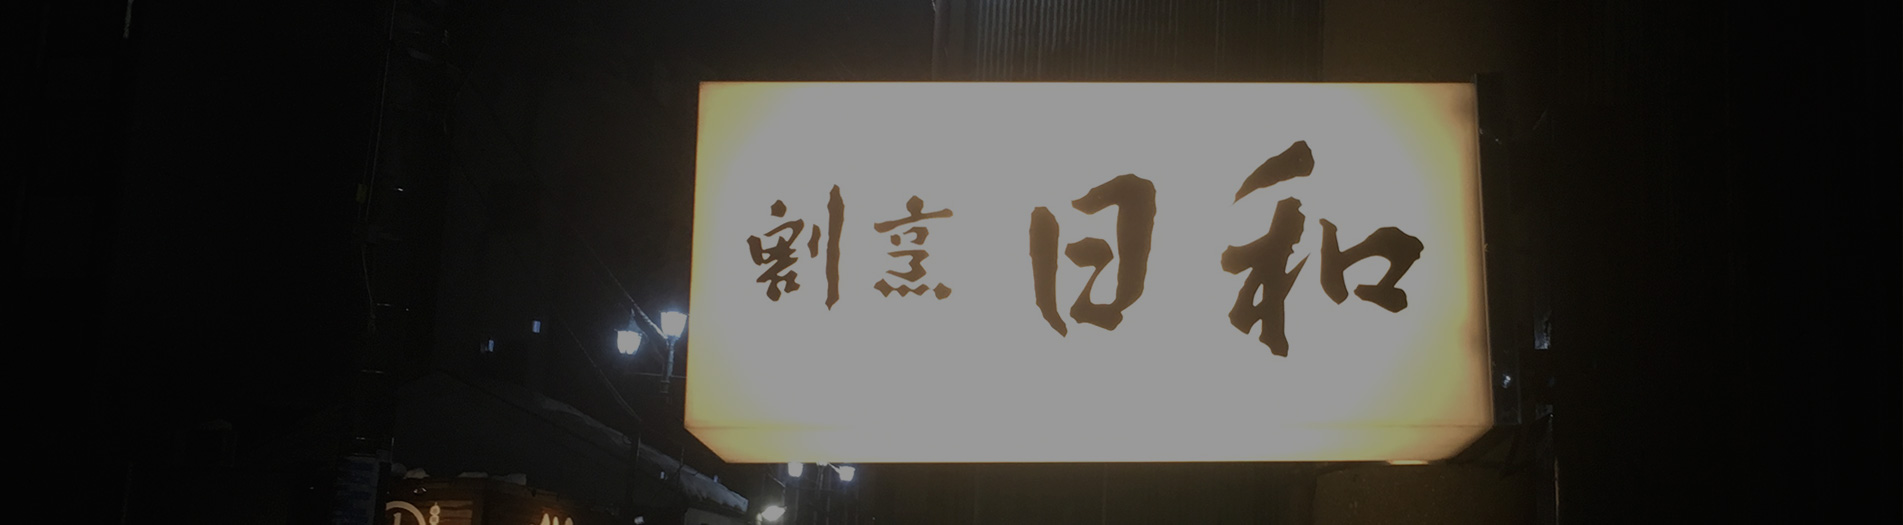 割烹 日和